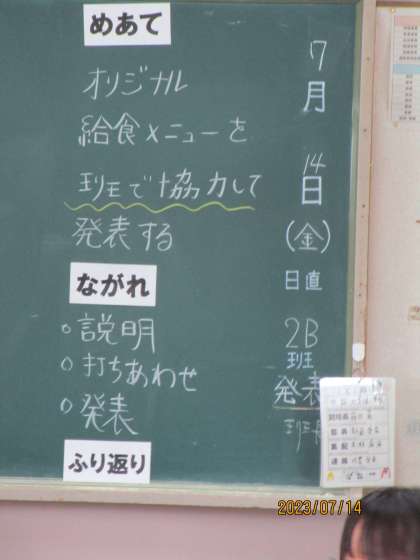 めあて
オリジナル
給食メニューを
班で協力して
発表する
ながれ
○説明
○打ちあわせ
○発表
ふり返り
7
月
14
日
(金)
日直
2B
班
発表
班長
2023/07/14